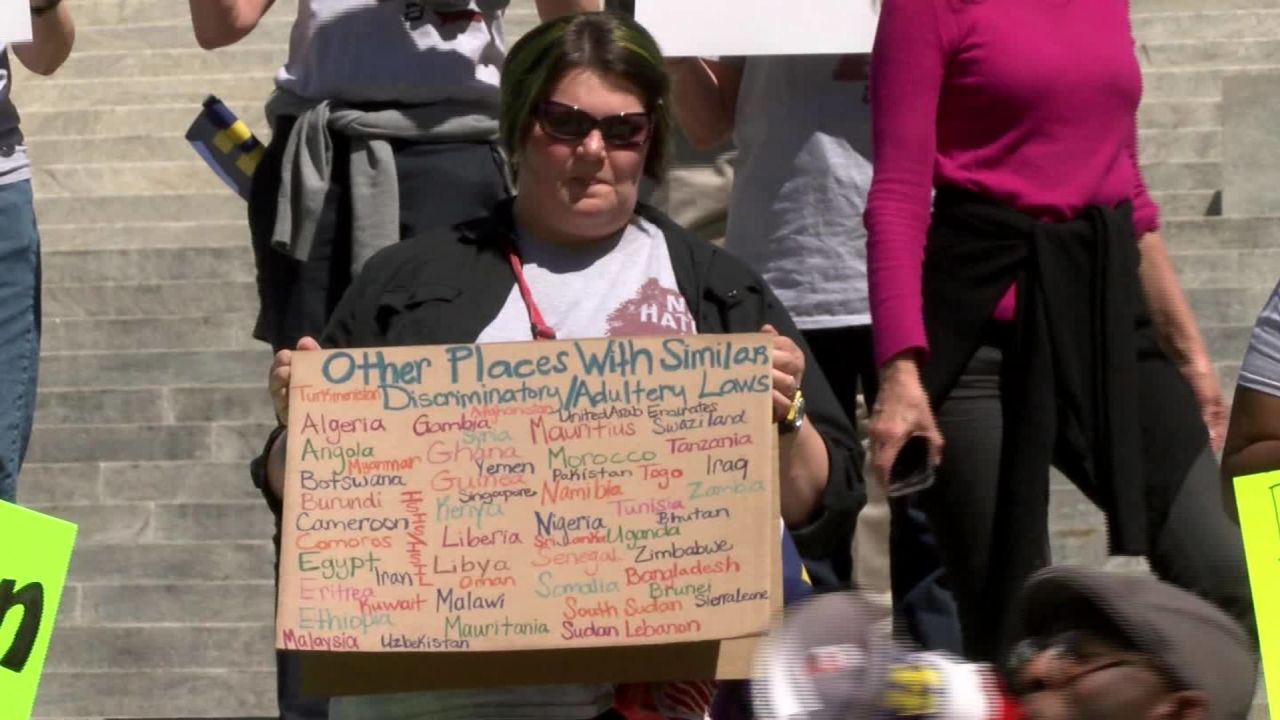 NO
HATE
Other Places With Similar
Turkmenistan Discriminatory/Adultery Laws
Afghanistan United Arab Emirates
Algeria Gambia Mauritius Swaziland
Syria
Angola Ghana Morocco Tanzania
Myanmar Yemen Pakistan Togo Iraq
Botswana Guinea Singapore Namibia Zambia
Burundi Kenya Tunisia
Cameroon Liberia Nigeria Bhutan
Comoros Sri Lanka Uganda
Egypt Libya Senegal Zimbabwe
Iran Oman Somalia Bangladesh
Eritrea Kuwait Malawi Brunei
Ethiopia South Sudan Sierra Leone
Malaysia Uzbekistan Mauritania Sudan Lebanon